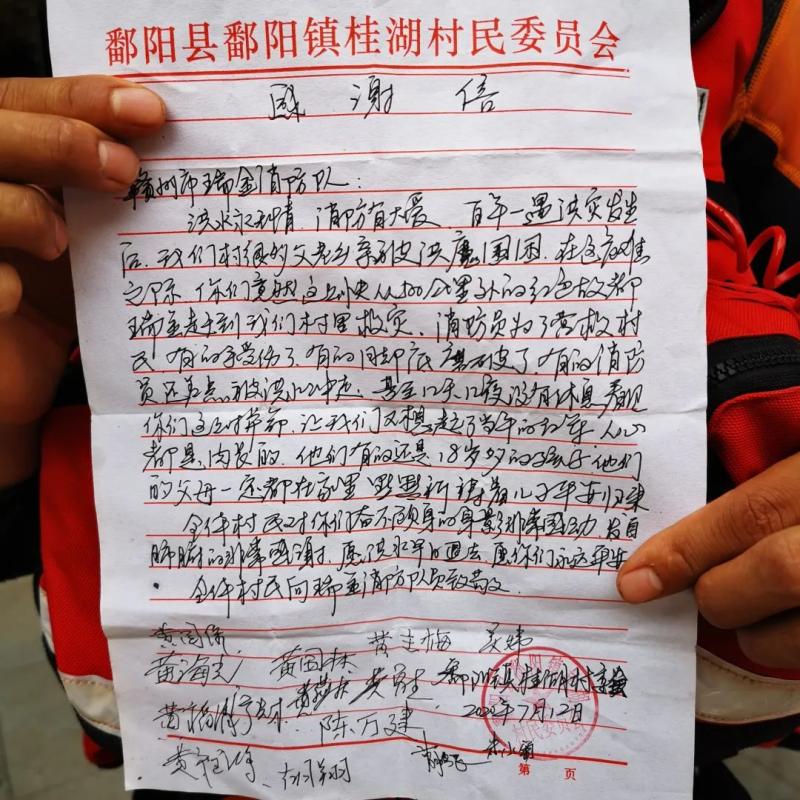 鄱阳县鄱阳镇桂湖村民委员会
感谢信
赣州市瑞金消防队:
洪水无情,消防有大爱,百年一遇洪灾发生
后,我们村很多父老乡亲被洪魔围困,在危难
之际,你们竟然连夜从400公里外的红色故都
瑞金赶到我们村里救灾,消防员为了营救村
民,有的手受伤了,有的因脚底磨破了,有的消防
员还差点被洪水冲走,甚至几天几夜没有休息,看见
你们这时拼命,让我们又想起了当年的红军,人心
都是肉长的,他们有的还是18岁多的孩子,他们
的父母一定都在家里默默祈祷着儿子平安归来
全体村民对你们奋不顾身的身影非常感动,发自
肺腑的非常感谢,愿洪水早日退去,愿你们永远平安
全体村民向瑞金消防队员致敬
黄国保 黄生梅
黄海 黄国林
鄱阳镇桂湖村委会
陈万建 2020年7月12日
第 页